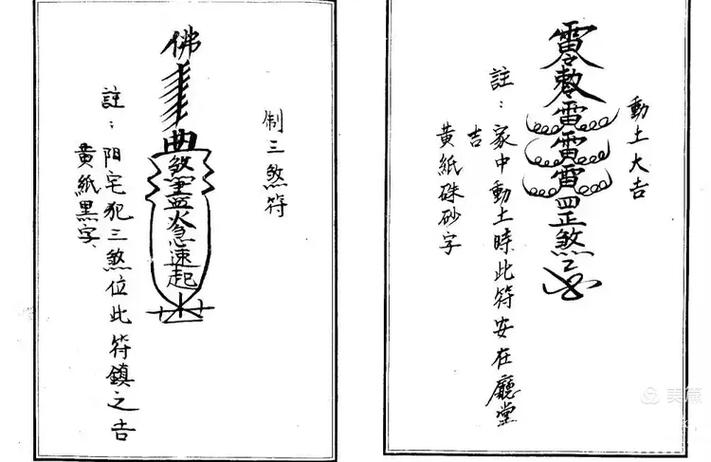 動土大吉
雷
雷
雷
四正煞
註：家中動土時此符安在廳堂
吉
黄紙硃砂字
制三煞符
佛
煞
火急速起
註：阳宅犯三煞位此符鎮之吉
黄紙黑字、
美篇